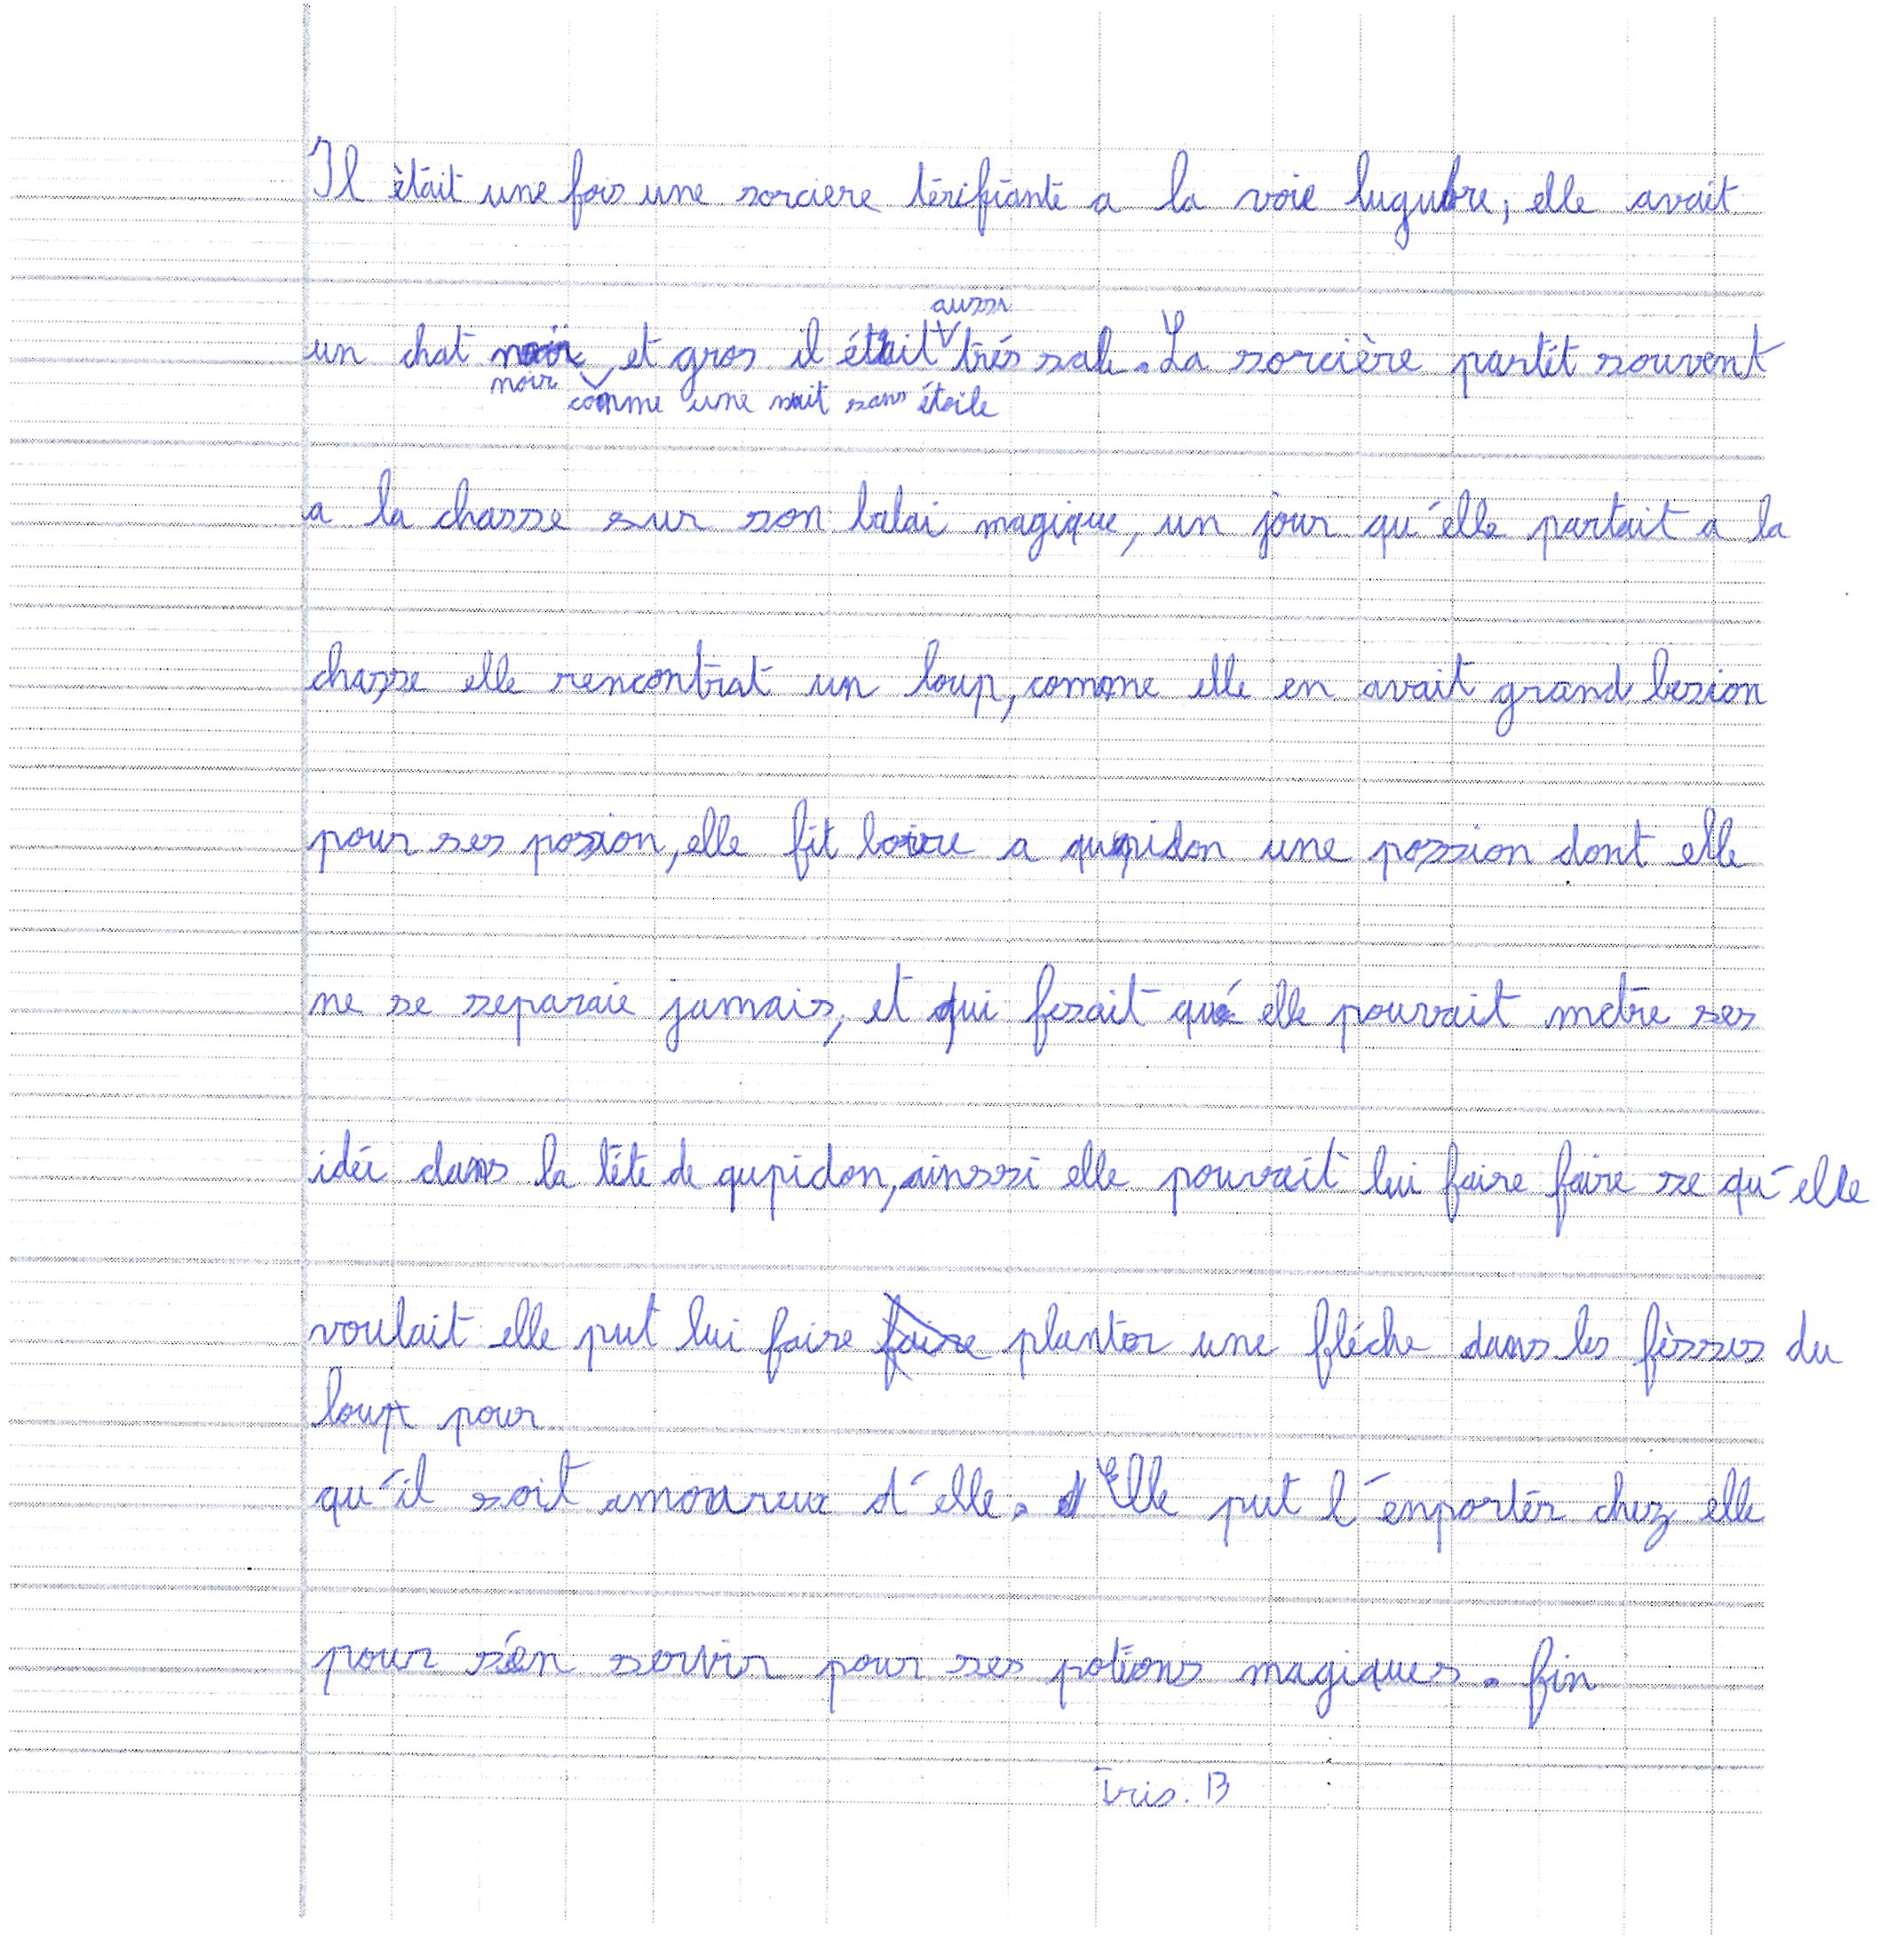 Il ètait une fois une sorciere térifiante a la voie lugubre, elle avait
aussi
un chat et gros il était très sale. La sorcière partit souvent
noir comme une nuit sans étoile
a la chasse sur son balai magique, un jour qu'elle partait a la
chasse elle rencontrat un loup, comme elle en avait grand besion
pour ses posion, elle fit boire a qupidon une possion dont elle
ne se separaie jamais, et qui fesait que elle pouvait metre ses
idée dans la tête de qupidon, ainssi elle pouvait lui faire faire se qu'elle
voulait elle put lui faire faire planter une fléche dans les fèsses du
loup pour
qu'il soit amoureux d'elle. Elle put l'enportér chez elle
pour s'en servir pour ses potions magiques. fin
Iris. B